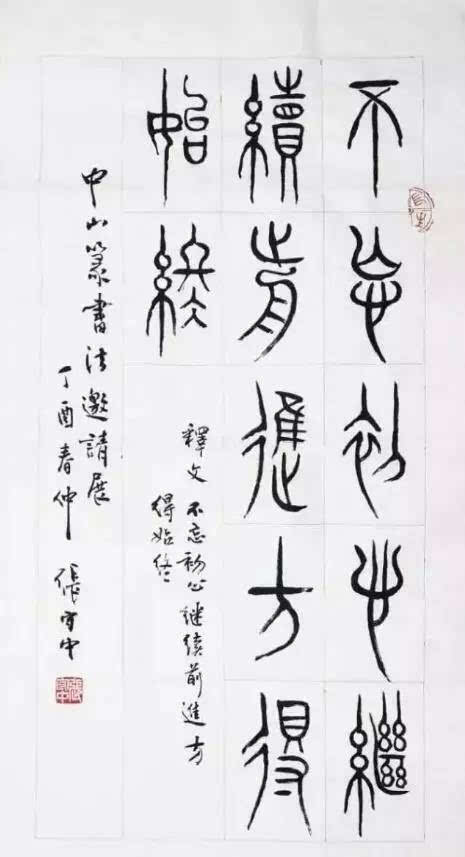 不忘初心繼
續前進方得
始終
釋文 不忘初心繼續前進方
得始終
中山篆書法邀請展
丁酉春仲 張守中